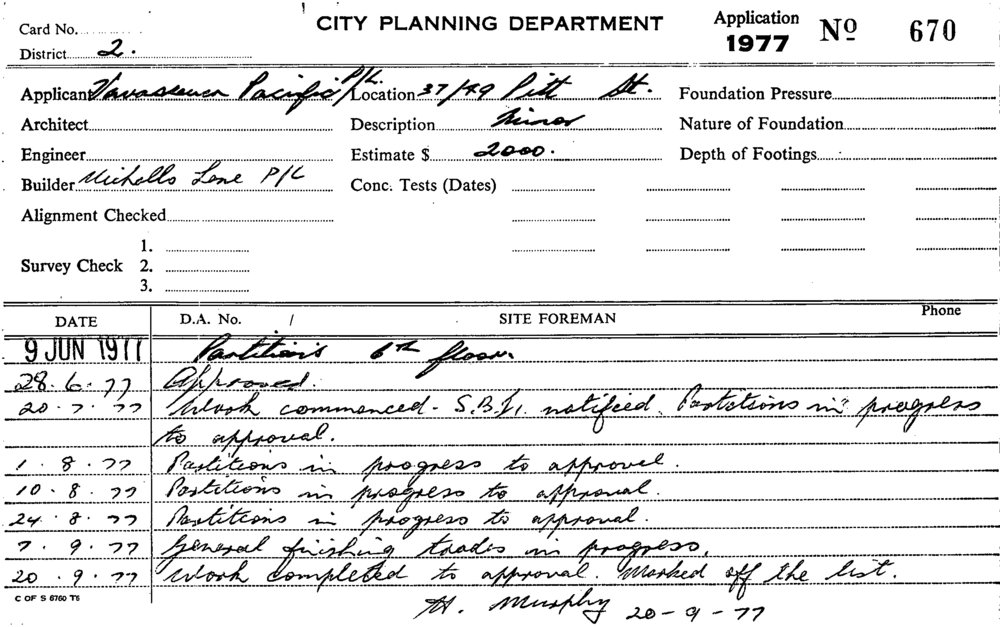 Card No.
CITY PLANNING DEPARTMENT
Application 1977 No 670
District 2.
Applicant Vavasseur Pacific P/L. Location 37/49 Pitt St. Foundation Pressure
Architect Description Minor Nature of Foundation
Engineer Estimate $ 2000. Depth of Footings
Builder Michells Lane P/L Conc. Tests (Dates)
Alignment Checked
1.
Survey Check 2.
3.
DATE D.A. No. / SITE FOREMAN Phone
9 JUN 1977 Partitions 6th floor.
28. 6. 77 Approved.
20. 7. 77 Work commenced - S.B.I. notified. Partitions in progress
to approval.
1. 8. 77 Partitions in progress to approval.
10. 8. 77 Partitions in progress to approval.
24. 8. 77 Partitions in progress to approval.
7. 9. 77 General finishing trades in progress.
20. 9. 77 Work completed to approval. Marked off the list.
C OF S 6760 T6
H. Murphy 20-9-77